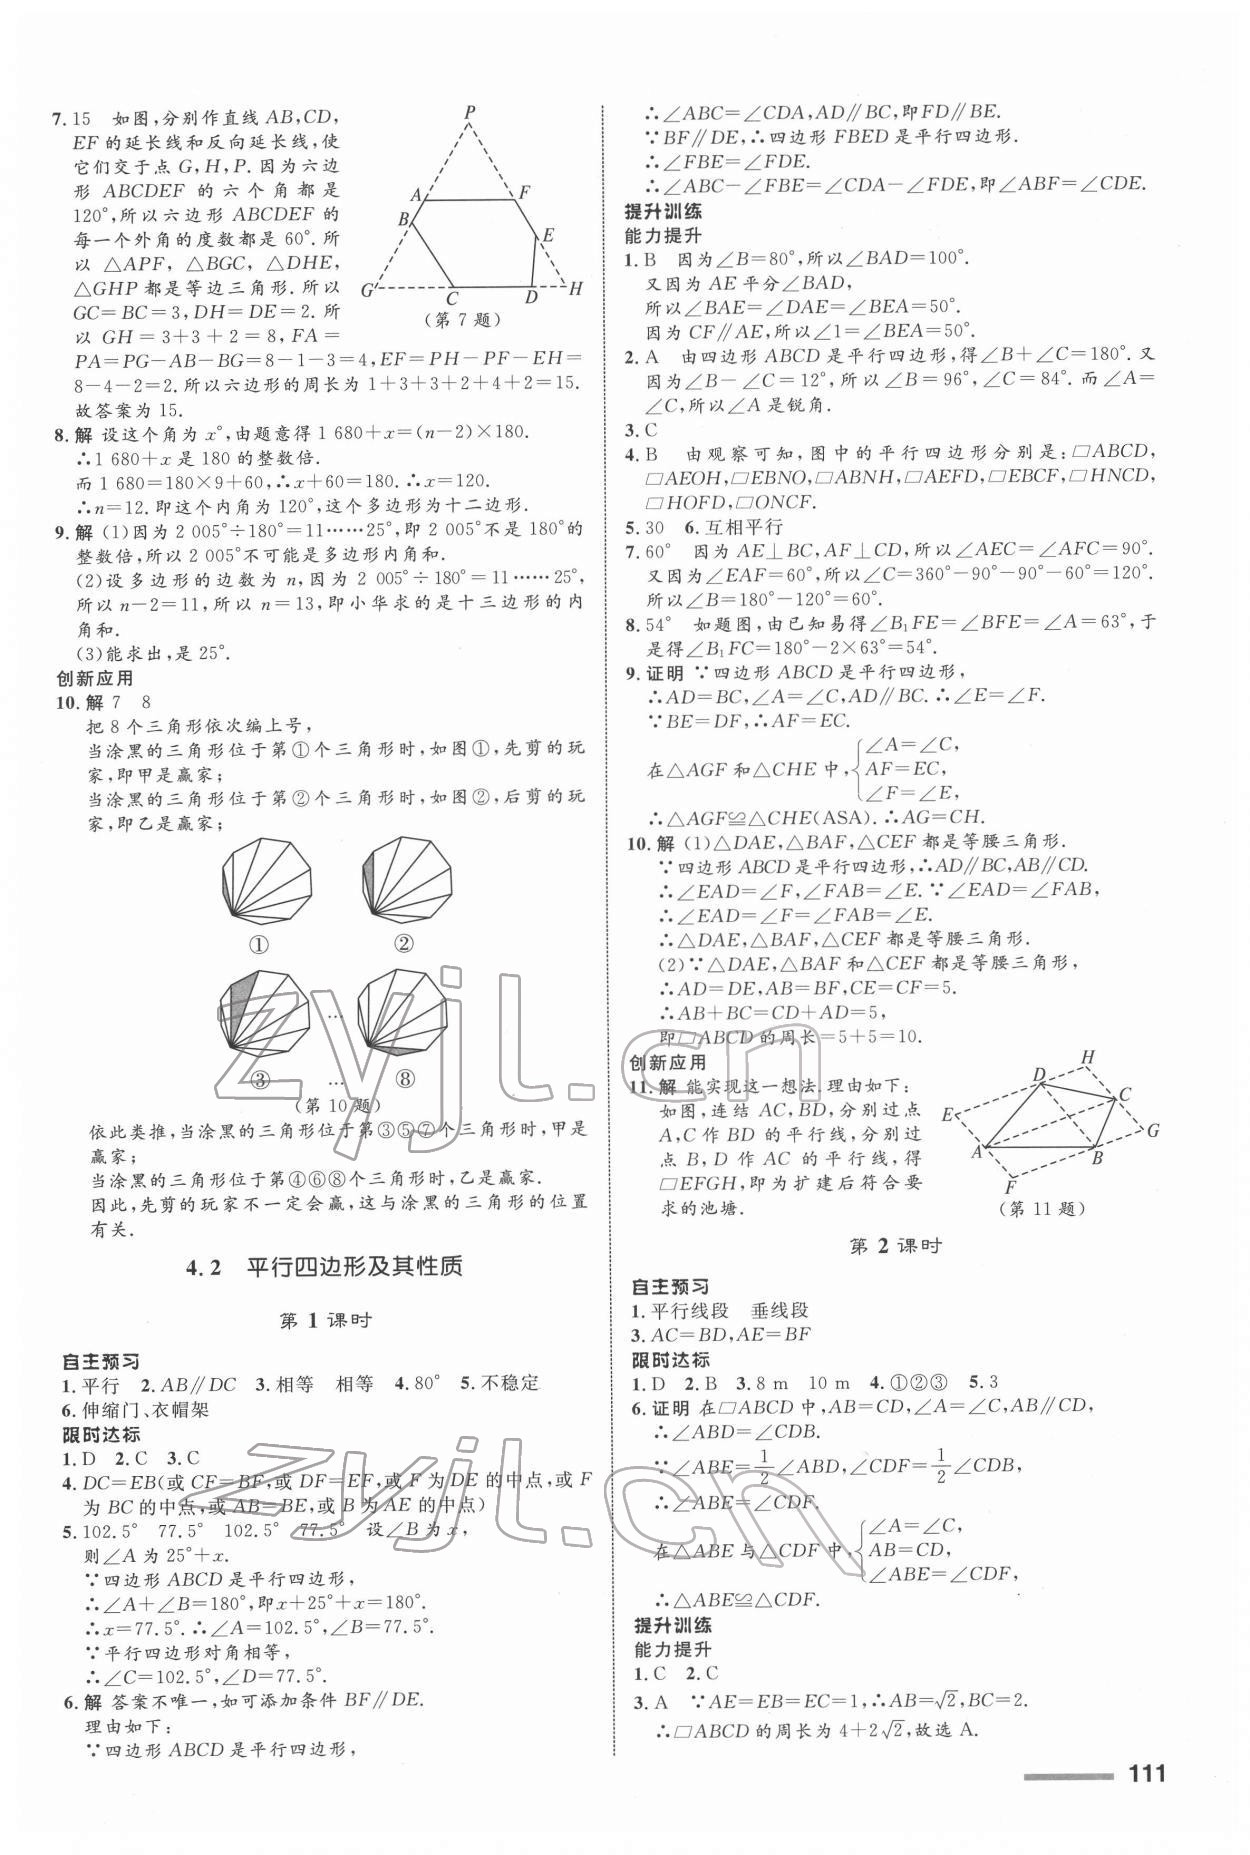 7. 15　如图,分别作直线 AB,CD,
EF 的延长线和反向延长线,使
它们交于点 G,H,P. 因为六边
形 ABCDEF 的六个角都是
120°,所以六边形 ABCDEF 的
每一个外角的度数都是 60°. 所
以 △APF, △BGC, △DHE,
△GHP 都是等边三角形. 所以
GC=BC=3,DH=DE=2. 所
以 GH=3+3+2=8,FA=
PA=PG-AB-BG=8-1-3=4,EF=PH-PF-EH=
8-4-2=2. 所以六边形的周长为 1+3+3+2+4+2=15.
故答案为 15.
P
A
F
B
E
G
C
D
H
(第 7 题)
8. 解 设这个角为 x°,由题意得 1 680+x=(n-2)×180.
∴1 680+x 是 180 的整数倍.
而 1 680=180×9+60,∴x+60=180. ∴x=120.
∴n=12. 即这个内角为 120°,这个多边形为十二边形.
9. 解 (1)因为 2 005°÷180°=11……25°,即 2 005°不是 180°的
整数倍,所以 2 005°不可能是多边形内角和.
(2)设多边形的边数为 n,因为 2 005°÷180°=11……25°,
所以 n-2=11,所以 n=13,即小华求的是十三边形的内
角和.
(3)能求出,是 25°.
创新应用
10. 解 7　8
把 8 个三角形依次编上号,
当涂黑的三角形位于第①个三角形时,如图①,先剪的玩
家,即甲是赢家;
当涂黑的三角形位于第②个三角形时,如图②,后剪的玩
家,即乙是赢家;
①
②
…
③ … ⑧
(第 10 题)
依此类推,当涂黑的三角形位于第③⑤⑦个三角形时,甲是
赢家;
当涂黑的三角形位于第④⑥⑧个三角形时,乙是赢家.
因此,先剪的玩家不一定会赢,这与涂黑的三角形的位置
有关.
4.2　平行四边形及其性质
第 1 课时
自主预习
1. 平行　2. AB∥DC　3. 相等　相等　4. 80°　5. 不稳定
6. 伸缩门、衣帽架
限时达标
1. D　2. C　3. C
4. DC=EB(或 CF=BF,或 DF=EF,或 F 为 DE 的中点,或 F
为 BC 的中点,或 AB=BE,或 B 为 AE 的中点)
5. 102.5°　77.5°　102.5°　77.5°　设∠B 为 x,
则∠A 为 25°+x.
∵四边形 ABCD 是平行四边形,
∴∠A+∠B=180°,即x+25°+x=180°.
∴x=77.5°. ∴∠A=102.5°,∠B=77.5°.
∵平行四边形对角相等,
∴∠C=102.5°,∠D=77.5°.
6. 解 答案不唯一,如可添加条件 BF∥DE.
理由如下:
∵四边形 ABCD 是平行四边形,
∴∠ABC=∠CDA,AD∥BC,即 FD∥BE.
∵BF∥DE,∴四边形 FBED 是平行四边形.
∴∠FBE=∠FDE.
∴∠ABC-∠FBE=∠CDA-∠FDE,即∠ABF=∠CDE.
提升训练
能力提升
1. B　因为∠B=80°,所以∠BAD=100°.
又因为 AE 平分∠BAD,
所以∠BAE=∠DAE=∠BEA=50°.
因为 CF∥AE,所以∠1=∠BEA=50°.
2. A　由四边形 ABCD 是平行四边形,得∠B+∠C=180°. 又
因为∠B-∠C=12°,所以∠B=96°,∠C=84°. 而∠A=
∠C,所以∠A 是锐角.
3. C
4. B　由观察可知,图中的平行四边形分别是:▱ABCD,
▱AEOH,▱EBNO,▱ABNH,▱AEFD,▱EBCF,▱HNCD,
▱HOFD,▱ONCF.
5. 30　6. 互相平行
7. 60°　因为 AE⊥BC,AF⊥CD,所以∠AEC=∠AFC=90°.
又因为∠EAF=60°,所以∠C=360°-90°-90°-60°=120°.
所以∠B=180°-120°=60°.
8. 54°　如题图,由已知易得∠B₁FE=∠BFE=∠A=63°,于
是得∠B₁FC=180°-2×63°=54°.
9. 证明 ∵四边形 ABCD 是平行四边形,
∴AD=BC,∠A=∠C,AD∥BC. ∴∠E=∠F.
∵BE=DF,∴AF=EC.
在△AGF 和△CHE 中, { ∠A=∠C,
AF=EC,
∠F=∠E,
∴△AGF≌△CHE(ASA). ∴AG=CH.
10. 解 (1)△DAE,△BAF,△CEF 都是等腰三角形.
∵四边形 ABCD 是平行四边形,∴AD∥BC,AB∥CD.
∴∠EAD=∠F,∠FAB=∠E. ∵∠EAD=∠FAB,
∴∠EAD=∠F=∠FAB=∠E.
∴△DAE,△BAF,△CEF 都是等腰三角形.
(2)∵△DAE,△BAF 和△CEF 都是等腰三角形,
∴AD=DE,AB=BF,CE=CF=5.
∴AB+BC=CD+AD=5,
即▱ABCD 的周长=5+5=10.
创新应用
11. 解 能实现这一想法. 理由如下:
如图,连结 AC,BD,分别过点
A,C 作 BD 的平行线,分别过
点 B,D 作 AC 的平行线,得
▱EFGH,即为扩建后符合要
求的池塘.
H
D
C
E
G
A
B
F
(第 11 题)
第 2 课时
自主预习
1. 平行线段　垂线段
3. AC=BD,AE=BF
限时达标
1. D　2. B　3. 8 m　10 m　4. ①②③　5. 3
6. 证明 在▱ABCD 中,AB=CD,∠A=∠C,AB∥CD,
∴∠ABD=∠CDB.
∵∠ABE=1/2∠ABD,∠CDF=1/2∠CDB,
∴∠ABE=∠CDF.
在△ABE 与△CDF 中, { ∠A=∠C,
AB=CD,
∠ABE=∠CDF,
∴△ABE≌△CDF.
提升训练
能力提升
1. C　2. C
3. A　∵AE=EB=EC=1,∴AB=√2,BC=2.
∴▱ABCD 的周长为 4+2√2,故选 A.
111
zyjl.cn
zyjl.cn